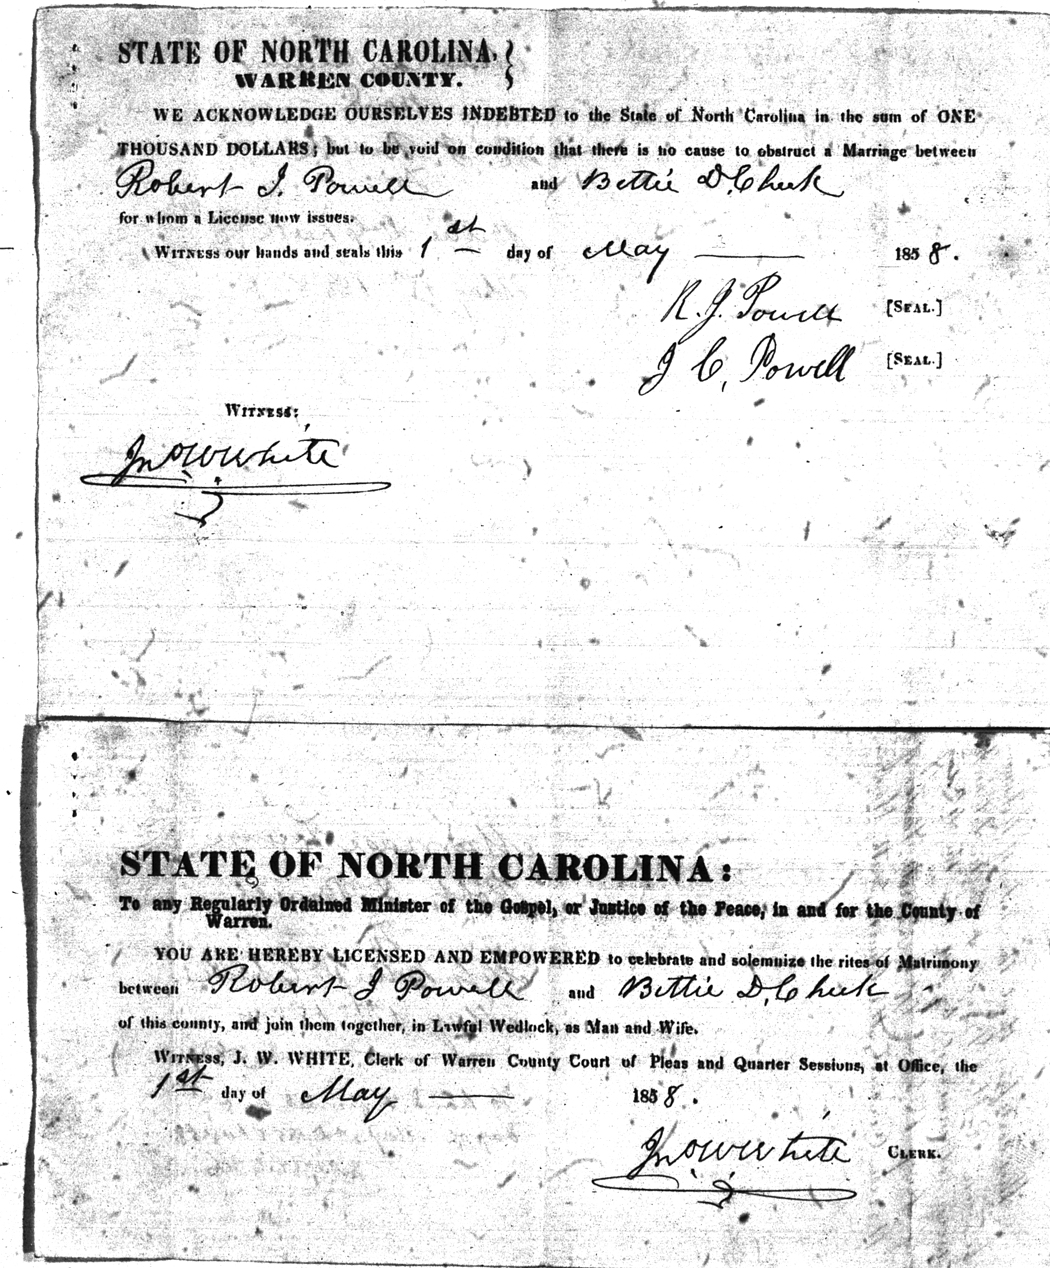 STATE OF NORTH CAROLINA,
WARREN COUNTY.
WE ACKNOWLEDGE OURSELVES INDEBTED to the State of North Carolina in the sum of ONE
THOUSAND DOLLARS; but to be void on condition that there is no cause to obstruct a Marriage between
Robert J. Powell and Bettie D. Cheek
for whom a License now issues.
WITNESS our hands and seals this 1st day of May 1858.
R. J. Powell [SEAL.]
J C. Powell [SEAL.]
WITNESS:
Jno W White
STATE OF NORTH CAROLINA:
To any Regularly Ordained Minister of the Gospel, or Justice of the Peace, in and for the County of
Warren.
YOU ARE HEREBY LICENSED AND EMPOWERED to celebrate and solemnize the rites of Matrimony
between Robert J Powell and Bettie D. Cheek
of this county, and join them together, in Lawful Wedlock, as Man and Wife.
WITNESS, J. W. WHITE, Clerk of Warren County Court of Pleas and Quarter Sessions, at Office, the
1st day of May 1858.
Jno W White CLERK.